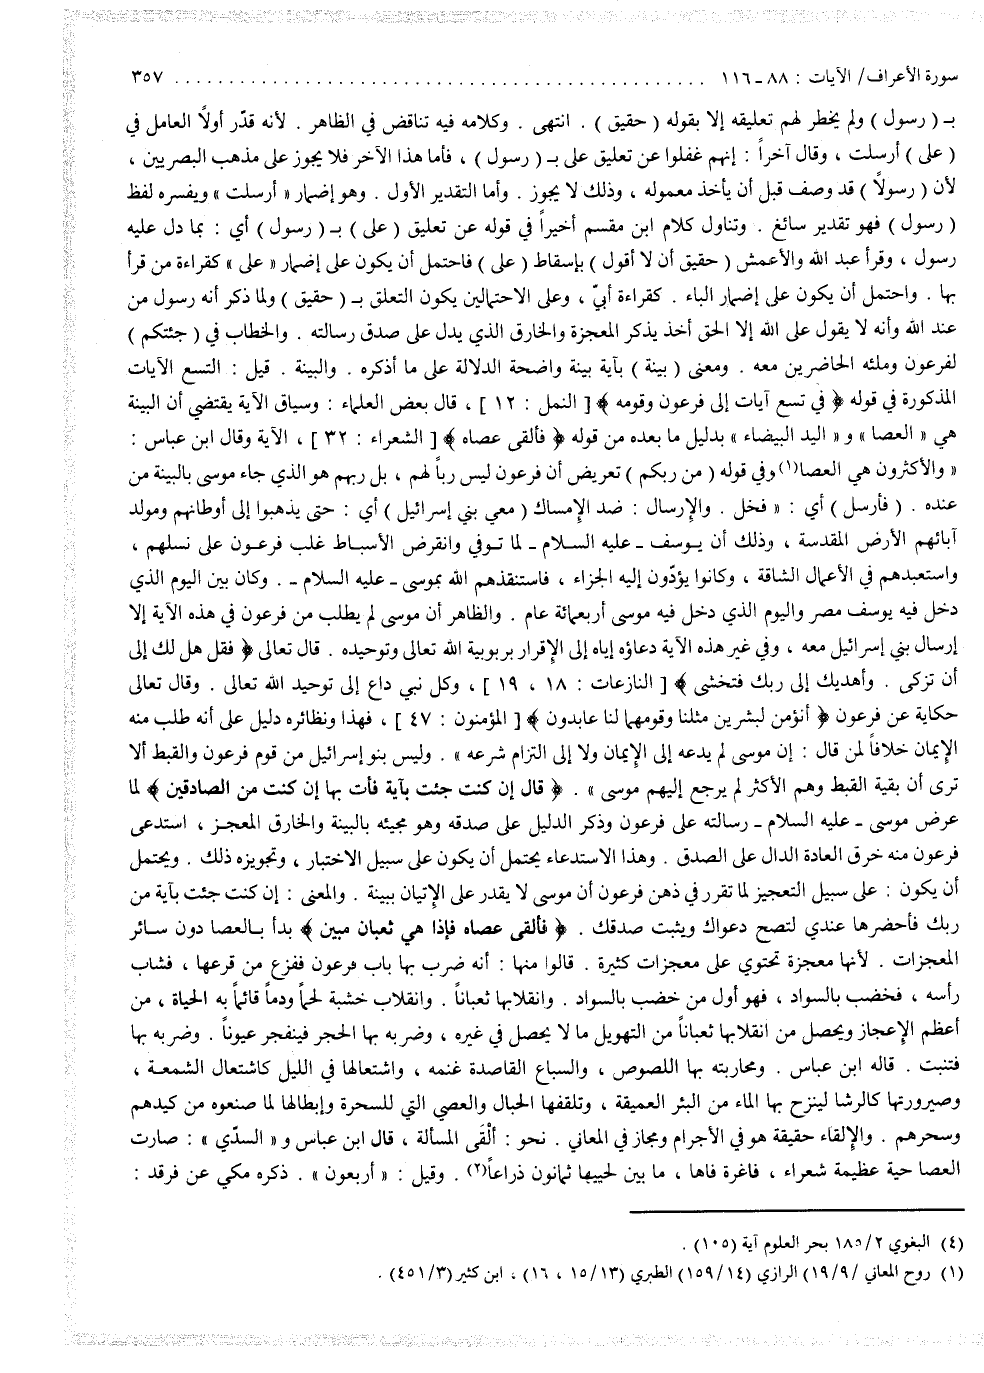 سورة الأعراف/ الآيات : ٨٨ ـ ١١٦ . . . . . . . . . . . . . . . . . . . . . . . . . . . . . . . . . . . . . ٣٥٧
بـ ( رسول ) ولم يخطر لهم تعليقه إلا بقوله ( حقيق ) . انتهى . وكلامه فيه تناقض في الظاهر . لأنه قدّر أولًا العامل في
( على ) أرسلت ، وقال آخراً : إنهم غفلوا عن تعليق على بـ ( رسول ) ، فأما هذا الآخر فلا يجوز على مذهب البصريين ،
لأن ( رسولًا ) قد وصف قبل أن يأخذ معموله ، وذلك لا يجوز . وأما التقدير الأول . وهو إضمار « أرسلت » ويفسره لفظ
( رسول ) فهو تقدير سائغ . وتناول كلام ابن مقسم أخيراً في قوله عن تعليق ( على ) بـ ( رسول ) أي : بما دل عليه
رسول ، وقرأ عبد الله والأعمش ( حقيق أن لا أقول ) بإسقاط ( على ) فاحتمل أن يكون على إضمار « على » كقراءة من قرأ
بها . واحتمل أن يكون على إضمار الباء . كقراءة أبيّ ، وعلى الاحتمالين يكون التعلق بـ ( حقيق ) ولما ذكر أنه رسول من
عند الله وأنه لا يقول على الله إلا الحق أخذ يذكر المعجزة والخارق الذي يدل على صدق رسالته . والخطاب في ( جئتكم )
لفرعون وملئه الحاضرين معه . ومعنى ( بينة ) بآية بينة واضحة الدلالة على ما أذكره . والبينة . قيل : التسع الآيات
المذكورة في قوله ﴿ في تسع آيات إلى فرعون وقومه ﴾ [ النمل : ١٢ ] ، قال بعض العلماء : وسياق الآية يقتضي أن البينة
هي « العصا » و « اليد البيضاء » بدليل ما بعده من قوله ﴿ فألقى عصاه ﴾ [ الشعراء : ٣٢ ] ، الآية وقال ابن عباس :
« والأكثرون هي العصا(١) وفي قوله ( من ربكم ) تعريض أن فرعون ليس رباً لهم ، بل ربهم هو الذي جاء موسى بالبينة من
عنده . ( فأرسل ) أي : « فخل . والإرسال : ضد الإمساك ( معي بني إسرائيل ) أي : حتى يذهبوا إلى أوطانهم ومولد
آبائهم الأرض المقدسة ، وذلك أن يوسف ـ عليه السلام ـ لما توفي وانقرض الأسباط غلب فرعون على نسلهم ،
واستعبدهم في الأعمال الشاقة ، وكانوا يؤدّون إليه الجزاء ، فاستنقذهم الله بموسى ـ عليه السلام ـ . وكان بين اليوم الذي
دخل فيه يوسف مصر واليوم الذي دخل فيه موسى أربعمائة عام . والظاهر أن موسى لم يطلب من فرعون في هذه الآية إلا
إرسال بني إسرائيل معه ، وفي غير هذه الآية دعاؤه إياه إلى الإقرار بربوبية الله تعالى وتوحيده . قال تعالى ﴿ فقل هل لك إلى
أن تزكى . وأهديك إلى ربك فتخشى ﴾ [ النازعات : ١٨ ، ١٩ ] ، وكل نبي داع إلى توحيد الله تعالى . وقال تعالى
حكاية عن فرعون ﴿ أنؤمن لبشرين مثلنا وقومهما لنا عابدون ﴾ [ المؤمنون : ٤٧ ] ، فهذا ونظائره دليل على أنه طلب منه
الإيمان خلافاً لمن قال : إن موسى لم يدعه إلى الإيمان ولا إلى التزام شرعه » . وليس بنو إسرائيل من قوم فرعون والقبط ألا
ترى أن بقية القبط وهم الأكثر لم يرجع إليهم موسى » . ﴿ قال إن كنت جئت بآية فأت بها إن كنت من الصادقين ﴾ لما
عرض موسى ـ عليه السلام ـ رسالته على فرعون وذكر الدليل على صدقه وهو مجيئه بالبينة والخارق المعجز ، استدعى
فرعون منه خرق العادة الدال على الصدق . وهذا الاستدعاء يحتمل أن يكون على سبيل الاختبار ، وتجويزه ذلك . ويحتمل
أن يكون : على سبيل التعجيز لما تقرر في ذهن فرعون أن موسى لا يقدر على الإتيان ببينة . والمعنى : إن كنت جئت بآية من
ربك فأحضرها عندي لتصح دعواك ويثبت صدقك . ﴿ فألقى عصاه فإذا هي ثعبان مبين ﴾ بدأ بالعصا دون سائر
المعجزات . لأنها معجزة تحتوي على معجزات كثيرة . قالوا منها : أنه ضرب بها باب فرعون ففزع من قرعها ، فشاب
رأسه ، فخضب بالسواد ، فهو أول من خضب بالسواد . وانقلابها ثعباناً . وانقلاب خشبة لحماً ودماً قائماً به الحياة ، من
أعظم الإعجاز ويحصل من انقلابها ثعباناً من التهويل ما لا يحصل في غيره ، وضربه بها الحجر فينفجر عيوناً . وضربه بها
فتنبت . قاله ابن عباس . ومحاربته بها اللصوص ، والسباع القاصدة غنمه ، واشتعالها في الليل كاشتعال الشمعة ،
وصيرورتها كالرشا لينزح بها الماء من البئر العميقة ، وتلقفها الحبال والعصي التي للسحرة وإبطالها لما صنعوه من كيدهم
وسحرهم . والإلقاء حقيقة هو في الأجرام ومجاز في المعاني . نحو : ألْقَى المسألة ، قال ابن عباس و « السدّي » : صارت
العصا حية عظيمة شعراء ، فاغرة فاها ، ما بين لحييها ثمانون ذراعاً(٢) . وقيل : « أربعون » . ذكره مكي عن فرقد :
(٤) البغوي ١٨٥/٢ بحر العلوم آية (١٠٥) .
(١) روح المعاني /١٩/٩) الرازي (١٥٩/١٤) الطبري (١٥/١٣ ، ١٦) ، ابن كثير (٤٥١/٣) .